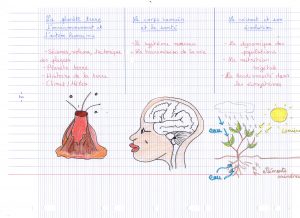 La planète terre
l'environnement et
l'action humaine
- Séismes, volcans, tectonique
des plaques
- Planète terre
- Histoire de la terre
- Climat / Météo
Le corps humain
et la santé
- Le système nerveux
- La transmission de la vie
Le vivant et son
évolution
- La dynamique des
populations
- La nutrition
végétale
- La biodiversité dans les
écosystèmes
eau
lumière
eau
éléments
minéraux